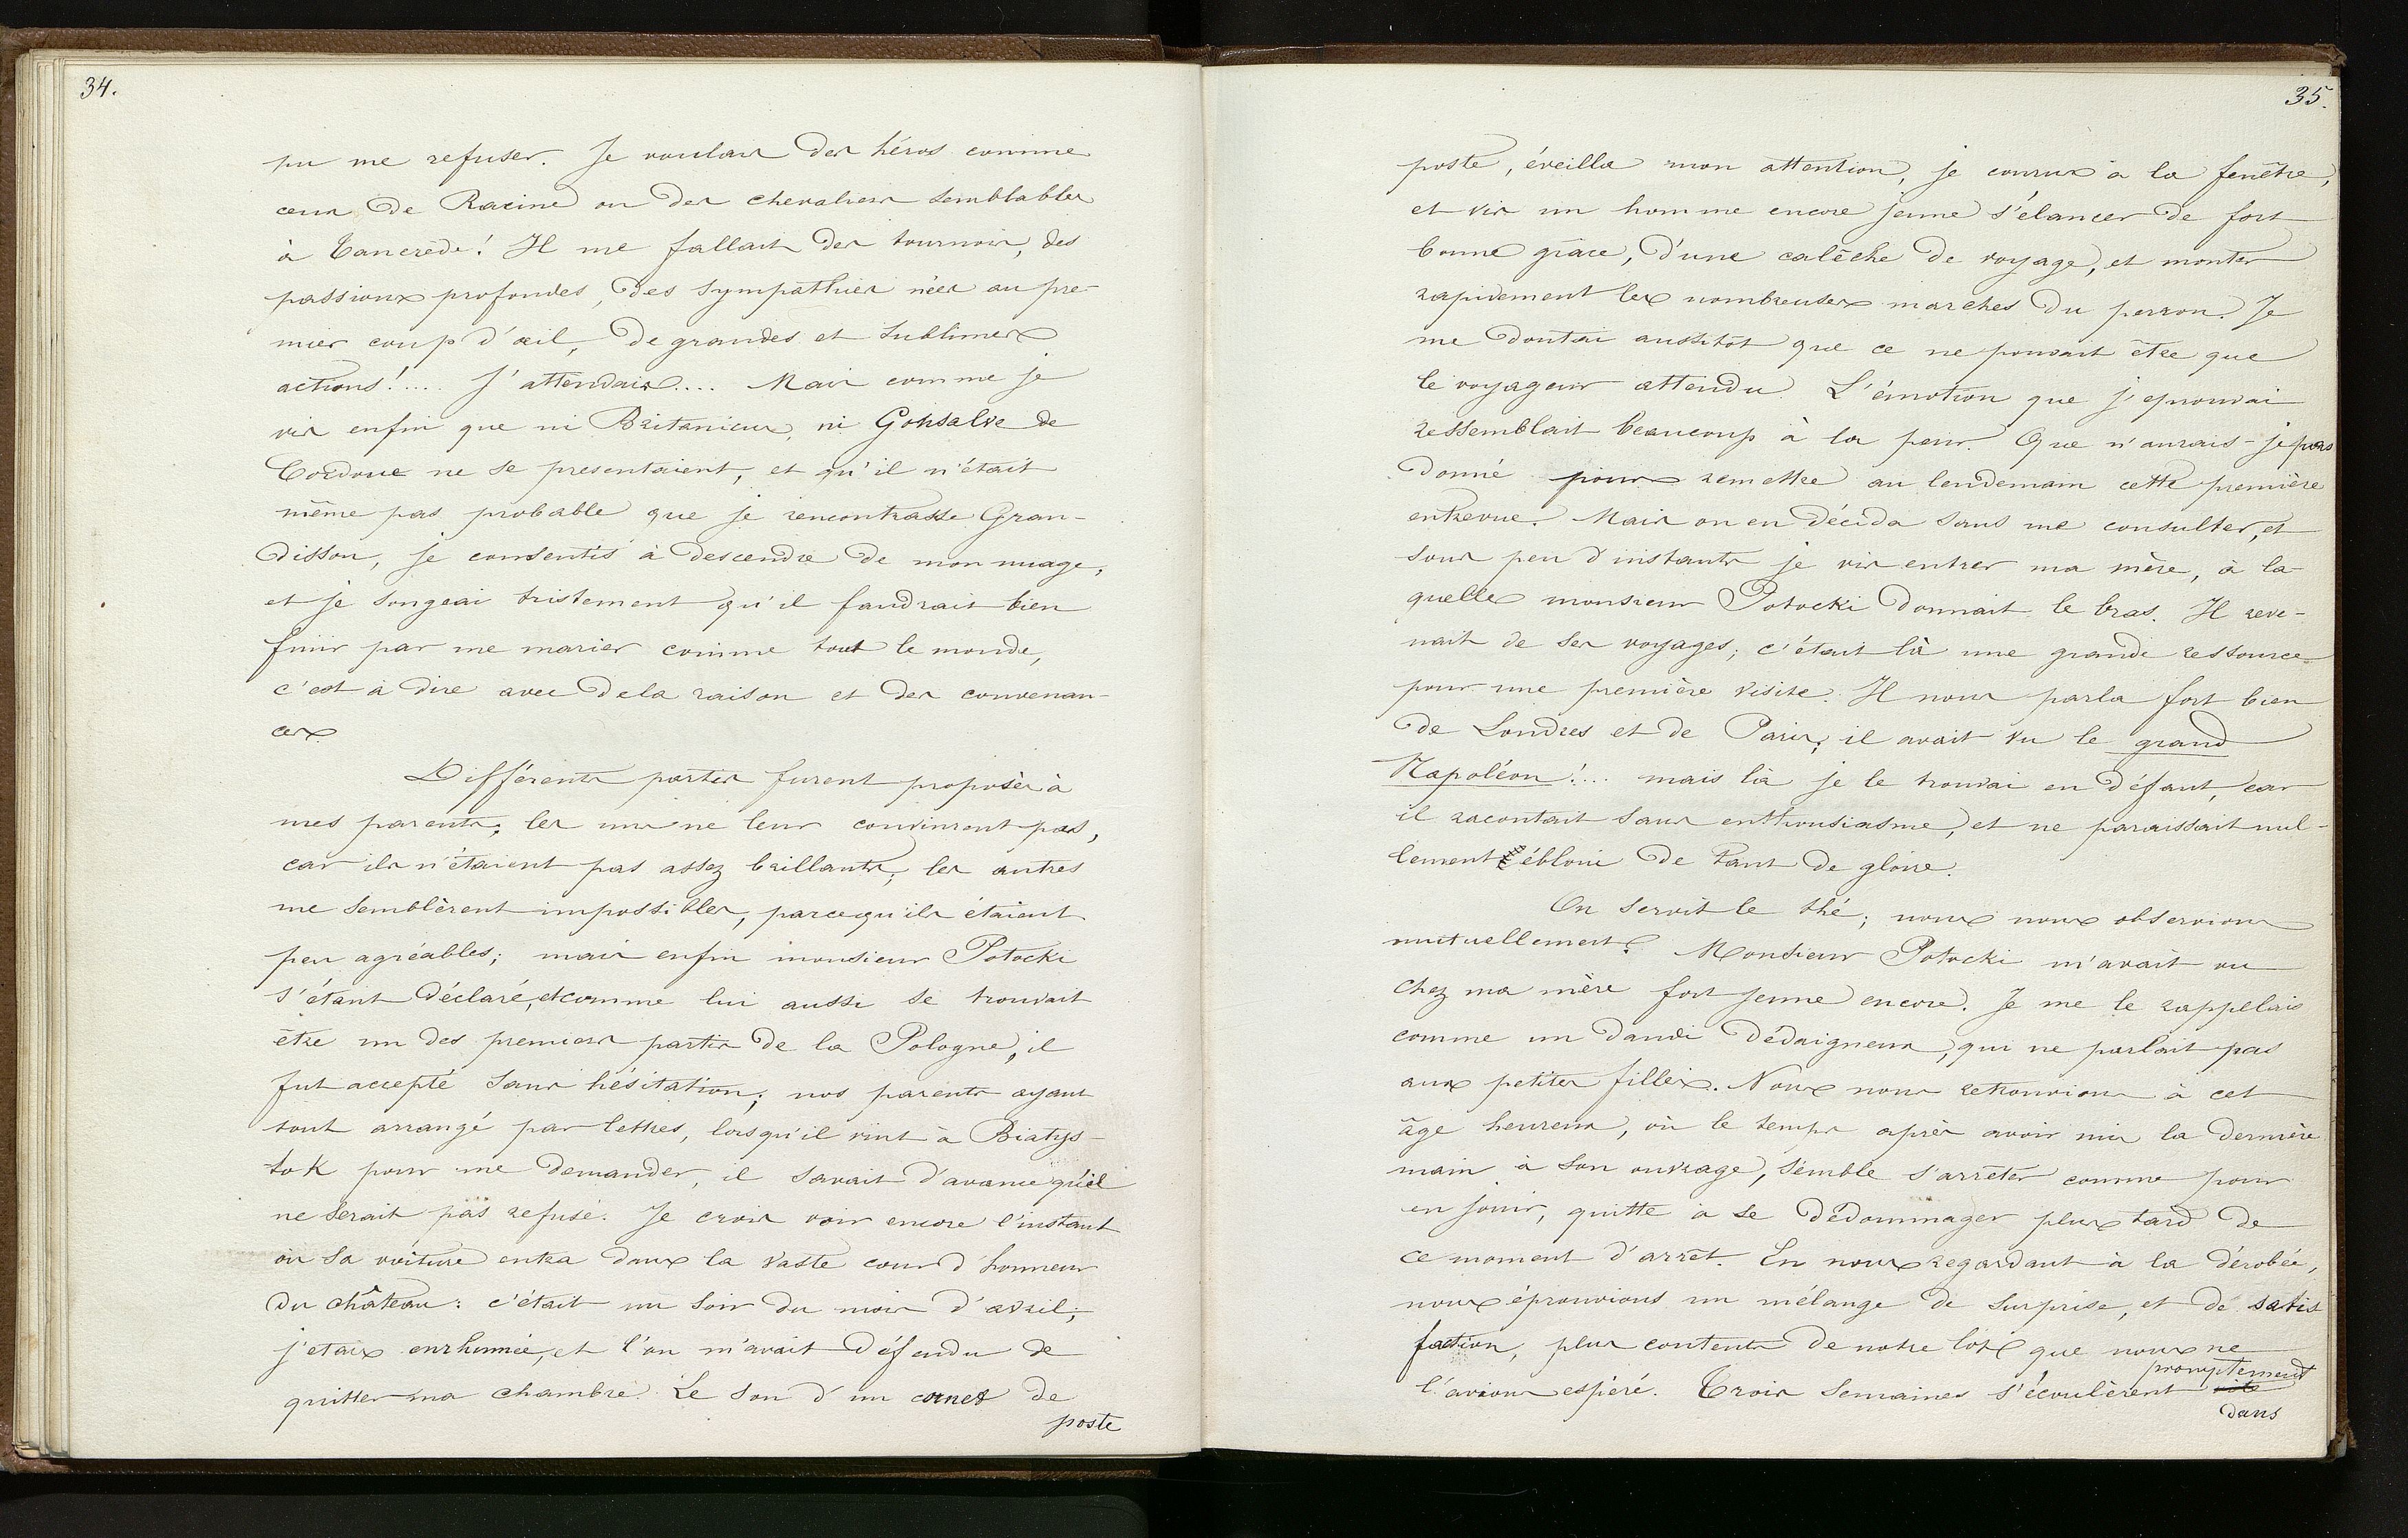 34.
pu me refuser. Je voulais des héros comme
ceux de Racine ou des chevaliers semblables
à Tancrède! Il me fallait des tournois, des
passions profondes, des sympathies nées au pre-
mier coup d'œil, de grandes et sublimes
actions!.... J'attendais.... Mais comme je
vis enfin que ni Britanicus, ni Gonsalve de
Cordoue ne se presentaient, et qu'il n'était
même pas probable que je rencontrasse Gran-
disson, je consentis à descendre de mon nuage,
et je songeai tristement qu'il faudrait bien
finir par me marier comme tout le monde,
c'est à dire avec de la raison et des convenan-
ces.
Différents partis furent proposés à
mes parents; les uns ne leur convinrent pas,
car ils n'étaient pas assez brillants; les autres
me semblèrent impossibles, parcequ'ils étaient
peu agréables; mais enfin monsieur Potocki
s'étant déclaré, et comme lui aussi se trouvait
être un des premiers partis de la Pologne, il
fut accepté sans hésitation; nos parents ayant
tout arrangé par lettres, lorsqu'il vint à Biatys-
tok pour me demander, il savait d'avance qu'il
ne serait pas refusé. Je crois voir encore l'instant
où sa voiture entra dans la vaste cour d'honneur
du château: c'était un soir du mois d'avril;
j'etais enrhumée, et l'on m'avait défendu de
quitter ma chambre. Le son d'un cornet de
poste
35.
poste, éveilla mon attention, je courus à la fenêtre,
et vis un homme encore jeune s'élancer de fort
bonne grâce, d'une calèche de voyage, et monter
rapidement les nombreuses marches du perron. Je
me doutai aussitôt que ce ne pouvait être que
le voyageur attendu. L'émotion que j'eprouvai
ressemblait beaucoup à la peur. Que n'aurais-je pas
donné pour remettre au lendemain cette première
entrevue. Mais on en décida sans me consulter, et
sous peu d'instants je vis entrer ma mère, à la-
quelle monsieur Potocki donnait le bras. Il reve-
nait de ses voyages; c'était là une grande ressource
pour une première visite. Il nous parla fort bien
de Londres et de Paris; il avait vu le grand
Napoléon!... mais là je le trouvai en défaut, car
il racontait sans enthousiasme, et ne paraissait nul-
lement ébloui de tant de gloire.
On servit le thé; nous nous observions
mutuellement. Monsieur Potocki m'avait vu
chez ma mère fort jeune encore. Je me le rappelais
comme un dandi dédaigneux, qui ne parlait pas
aux petites filles. Nous nous retrouvions à cet
âge heureux, où le temps après avoir mis la dernière
main à son ouvrage, semble s'arrêter comme pour
en jouir, quitte à se dédommager plus tard de
ce moment d'arrêt. En nous regardant à la dérobée,
nous éprouvions un mélange de surprise, et de satis
faction, plus contents de notre lot que nous ne
l'avions espéré. Trois semaines s'écoulèrent vite promptement
dans